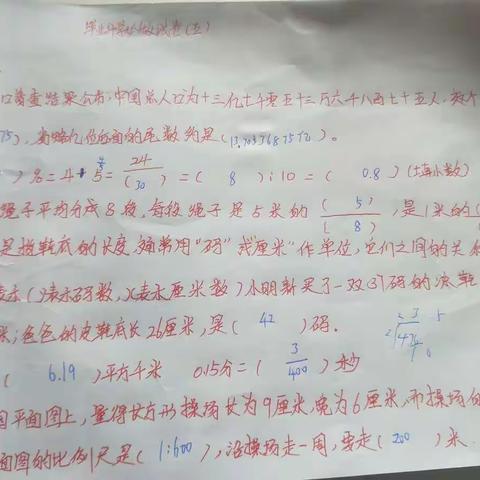 毕业升学模拟试卷(五)
口普查结果公布,中国总人口为十三亿七千零五十三万六千八百七十五人,
75),省略亿位后面的尾数约是(13.70536875亿)。
)%=4÷5=24/(30)=(8):10=(0.8)(填小数)
绳子平均分成8段,每段绳子是5米的(5)/(8),是1米的(
是指鞋底的长度,通常用“码”或“厘米”作单位,它们之间的关
表示()表示码数,x表示厘米数)小明新买了一双37码的凉鞋
米;爸爸的皮鞋底长26厘米,是(42)码.
(6.19)平方千米 0.15分=(3/400)秒
平面图上,量得长方形操场长为9厘米,宽为6厘米,而操场的
面图的比例尺是(1:600),沿操场走一周,要走(200)米.